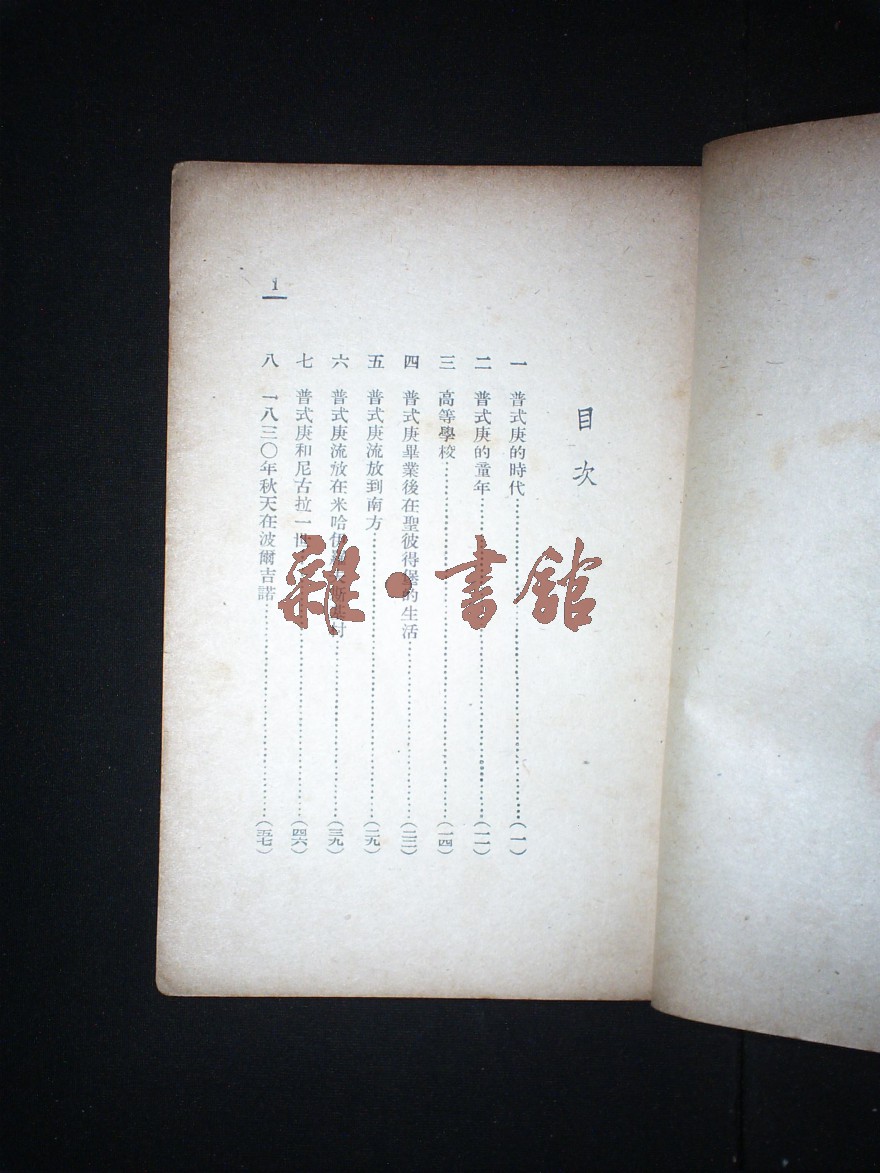 目次
一 普式庚的時代……(一)
二 普式庚的童年……(一一)
三 高等學校……(一四)
四 普式庚畢業後在聖彼得堡的生活……(二二)
五 普式庚流放到南方……(二九)
六 普式庚流放在米哈伊 村……(三九)
七 普式庚和尼古拉一世……(四六)
八 一八三〇年秋天在波爾吉諾……(五七)
1
雜·書館